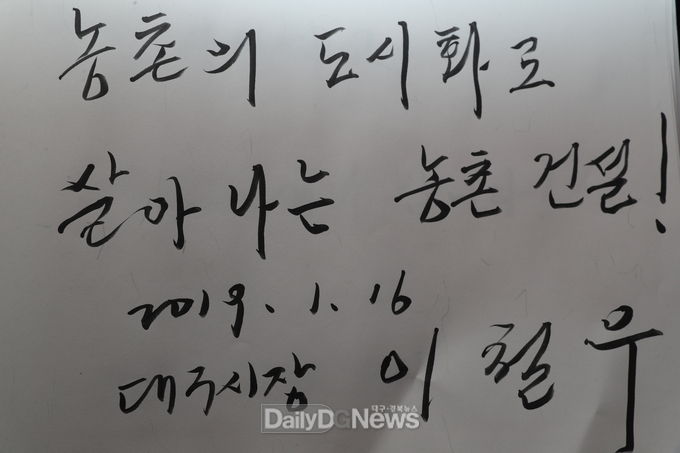 농촌의 도시화로
살아 나는 농촌 건설!
2019. 1. 16
대구시장 이철우
대구·경북뉴스
DailyDGNews